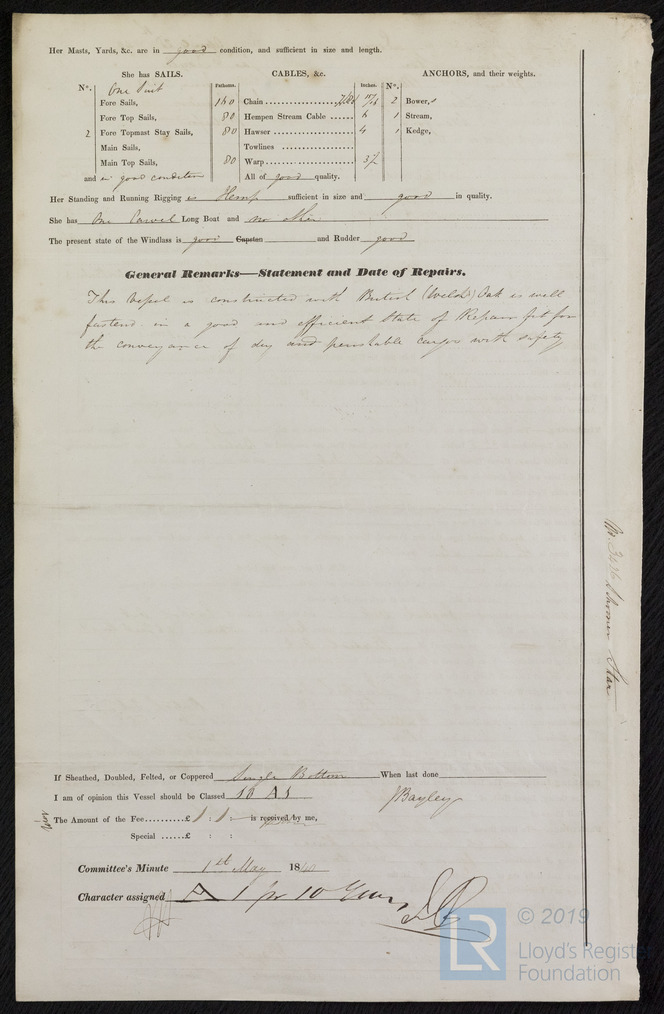 Her Masts, Yards, &c. are in good condition, and sufficient in size and length.
She has SAILS. CABLES, &c. ANCHORS, and their weights.
N°. Fathoms. Inches. N°.
One Suit
Fore Sails, 160 Chain 2 Bower,s
Fore Top Sails, 80 Hempen Stream Cable 6 1 Stream,
2 Fore Topmast Stay Sails, 80 Hawser 4 1 Kedge,
Main Sails, Towlines
Main Top Sails, 80 Warp 3½
and in good condition All of good quality.
Her Standing and Running Rigging is Hemp sufficient in size and good in quality.
She has One Long Boat and no other
The present state of the Windlass is good Capstan and Rudder good
General Remarks—Statement and Date of Repairs.
This Vessel is constructed with British (Welsh) Oak is well
fastend in a good and efficient State of Repair fit for
the conveyance of dry and perishable cargo with safety
No. Schooner Star
If Sheathed, Doubled, Felted, or Coppered Single Bottom When last done
I am of opinion this Vessel should be Classed A1
JBayley
The Amount of the Fee..........£ 1 : 1 : is received by me,
Special ......£ : :
Committee's Minute 1st May 1840
Character assigned A 1 for 10 Years
© 2019
LR
Lloyd's Register
Foundation